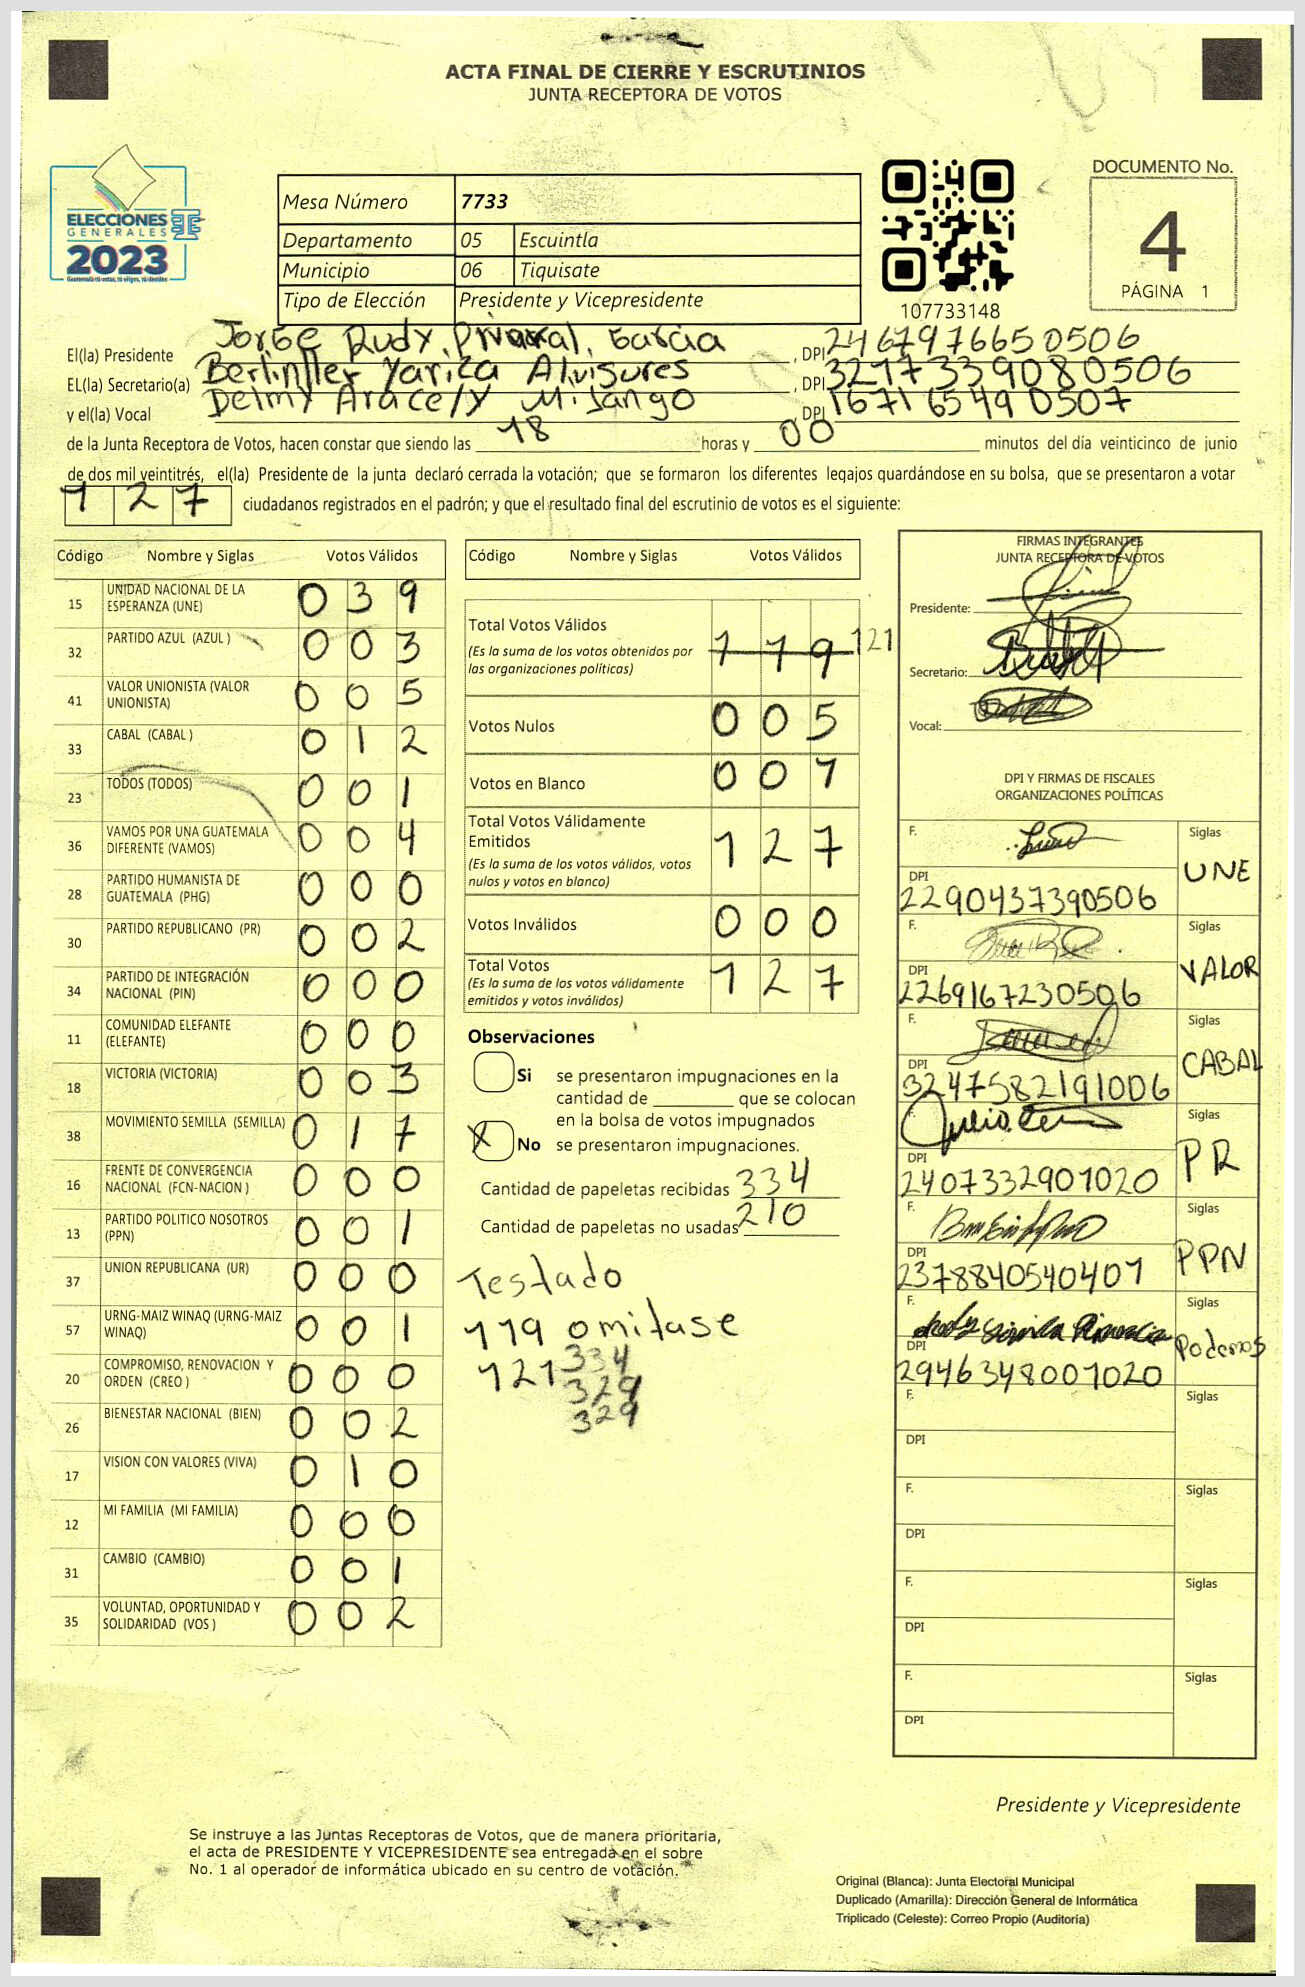 ACTA FINAL DE CIERRE Y ESCRUTINIOS
JUNTA RECEPTORA DE VOTOS
ELECCIONES
GENERALES
2023
Mesa Número 7733
Departamento 05 Escuintla
Municipio 06 Tiquisate
Tipo de Elección Presidente y Vicepresidente
107733148
DOCUMENTO No.
4
PÁGINA 1
El(la) Presidente Jorge Rudy García , DPI 2467976650506
EL(la) Secretario(a) Yariza Alvisures , DPI 3217339080506
y el(la) Vocal Delmy Aracely Mijango , DPI 1671654900507
de la Junta Receptora de Votos, hacen constar que siendo las 18 horas y 00 minutos del día veinticinco de junio
de dos mil veintitrés, el(la) Presidente de la junta declaró cerrada la votación; que se formaron los diferentes legajos quardándose en su bolsa, que se presentaron a votar
127 ciudadanos registrados en el padrón; y que el resultado final del escrutinio de votos es el siguiente:
Código Nombre y Siglas Votos Válidos
15 UNIDAD NACIONAL DE LA ESPERANZA (UNE) 0 3 9
32 PARTIDO AZUL (AZUL ) 0 0 3
41 VALOR UNIONISTA (VALOR UNIONISTA) 0 0 5
33 CABAL (CABAL ) 0 1 2
23 TODOS (TODOS) 0 0 1
36 VAMOS POR UNA GUATEMALA DIFERENTE (VAMOS) 0 0 4
28 PARTIDO HUMANISTA DE GUATEMALA (PHG) 0 0 0
30 PARTIDO REPUBLICANO (PR) 0 0 2
34 PARTIDO DE INTEGRACIÓN NACIONAL (PIN) 0 0 0
11 COMUNIDAD ELEFANTE (ELEFANTE) 0 0 0
18 VICTORIA (VICTORIA) 0 0 3
38 MOVIMIENTO SEMILLA (SEMILLA) 0 1 7
16 FRENTE DE CONVERGENCIA NACIONAL (FCN-NACION ) 0 0 0
13 PARTIDO POLITICO NOSOTROS (PPN) 0 0 1
37 UNION REPUBLICANA (UR) 0 0 0
57 URNG-MAIZ WINAQ (URNG-MAIZ WINAQ) 0 0 1
20 COMPROMISO, RENOVACION Y ORDEN (CREO ) 0 0 0
26 BIENESTAR NACIONAL (BIEN) 0 0 2
17 VISION CON VALORES (VIVA) 0 1 0
12 MI FAMILIA (MI FAMILIA) 0 0 0
31 CAMBIO (CAMBIO) 0 0 1
35 VOLUNTAD, OPORTUNIDAD Y SOLIDARIDAD (VOS ) 0 0 2
Código Nombre y Siglas Votos Válidos
Total Votos Válidos 1 1 9 121
(Es la suma de los votos obtenidos por
las organizaciones políticas)
Votos Nulos 0 0 5
Votos en Blanco 0 0 1
Total Votos Válidamente
Emitidos 1 2 7
(Es la suma de los votos válidos, votos
nulos y votos en blanco)
Votos Inválidos 0 0 0
Total Votos 1 2 7
(Es la suma de los votos válidamente
emitidos y votos inválidos)
Observaciones
Si se presentaron impugnaciones en la
cantidad de ________ que se colocan
en la bolsa de votos impugnados
X No se presentaron impugnaciones.
Cantidad de papeletas recibidas 334
Cantidad de papeletas no usadas 210
Testado
119 omitase
121 334
329
329
FIRMAS INTEGRANTES
JUNTA RECEPTORA DE VOTOS
Presidente:
Secretario:
Vocal:
DPI Y FIRMAS DE FISCALES
ORGANIZACIONES POLÍTICAS
F. Siglas UNE
DPI 2290437390506
F. Siglas VALOR
DPI 2269167230506
F. Siglas CABAL
DPI 3247582191006
F. Siglas PR
DPI 2407332901020
F. Siglas PPN
DPI 2378840540401
F. Siglas Podemos
DPI 2946348001020
F. Siglas
DPI
F. Siglas
DPI
F. Siglas
DPI
F. Siglas
DPI
Presidente y Vicepresidente
Se instruye a las Juntas Receptoras de Votos, que de manera prioritaria,
el acta de PRESIDENTE Y VICEPRESIDENTE sea entregada en el sobre
No. 1 al operador de informática ubicado en su centro de votación.
Original (Blanca): Junta Electoral Municipal
Duplicado (Amarilla): Dirección General de Informática
Triplicado (Celeste): Correo Propio (Auditoría)